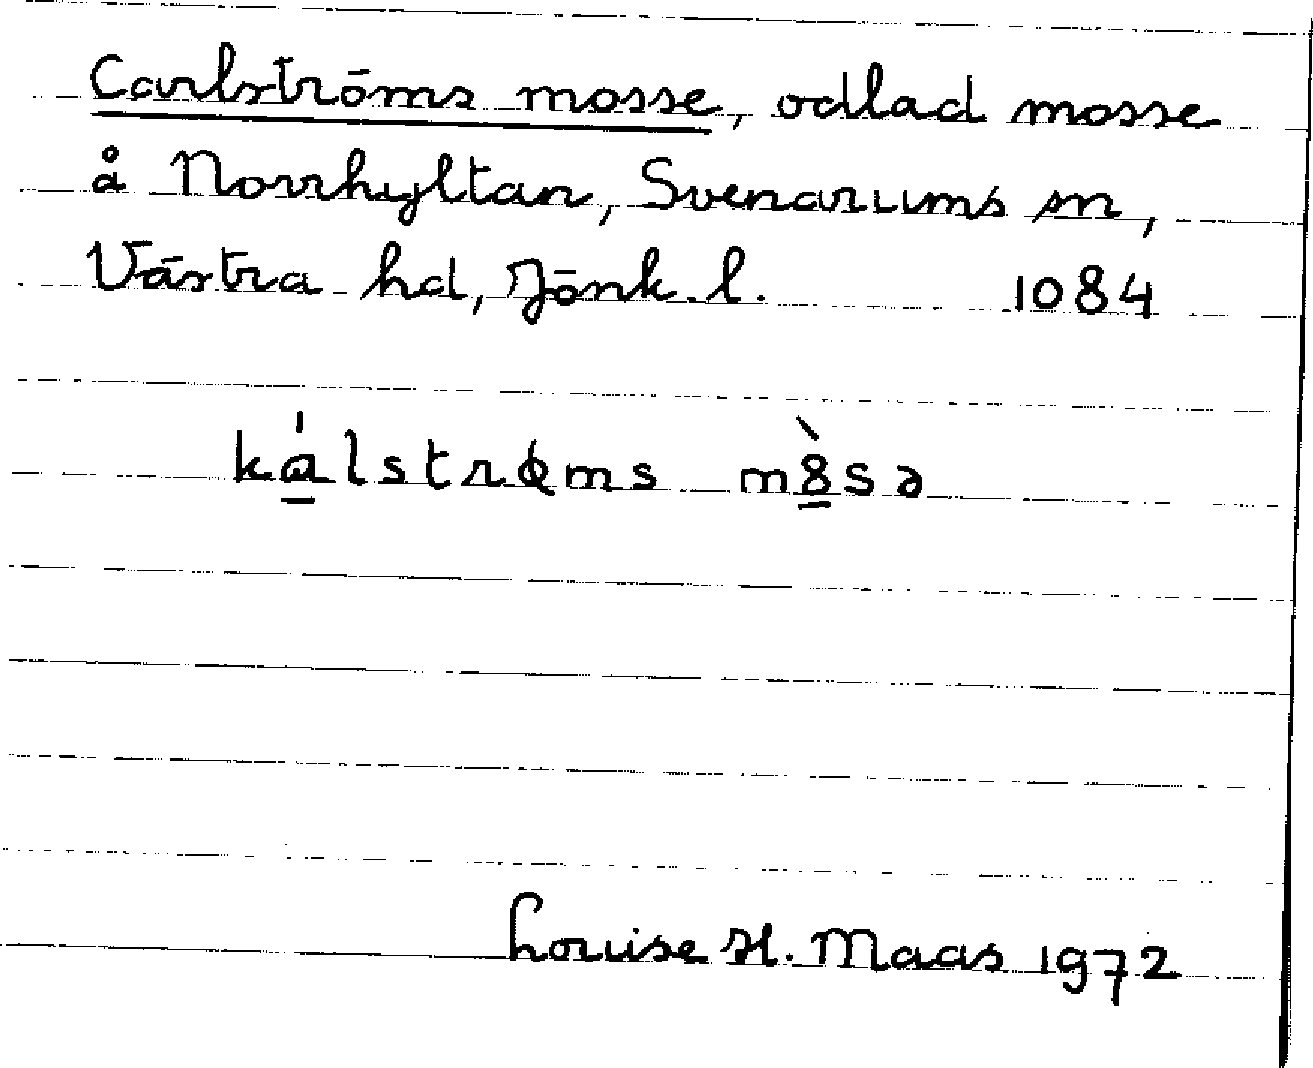 Carlströms mosse, odlad mosse
å Norrhyltan, Svenarums sn,
Västra hd, Jönk. l. 1084
ká̱lstrɸms mȣ̱̀sə
Louise H. Maas 1972